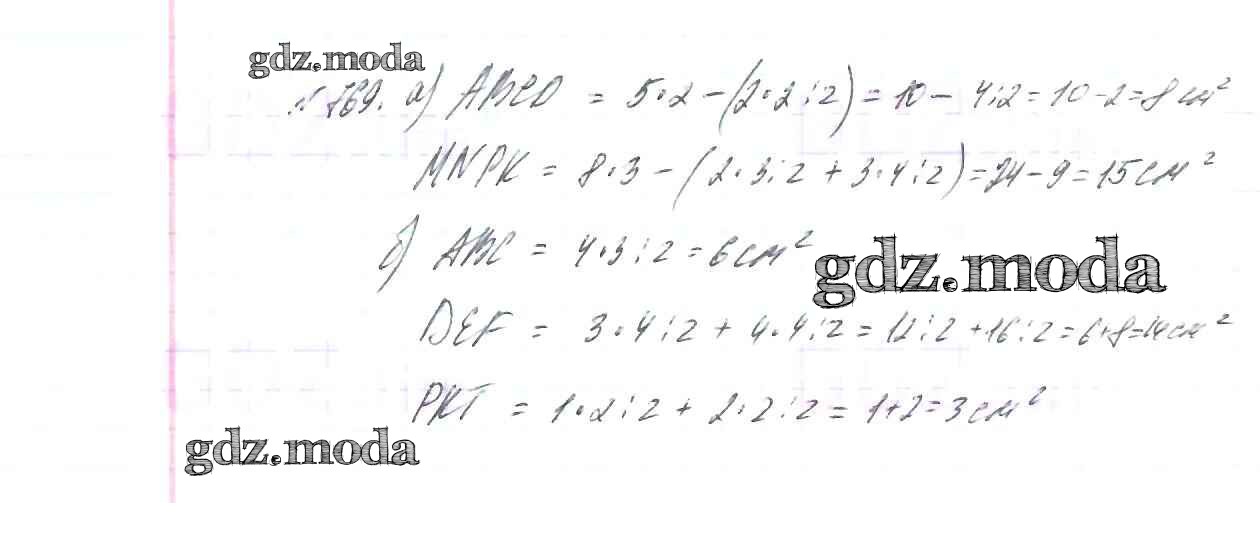 gdz.moda
№ 769. а) ABCD = 5·2 - (2·2:2) = 10 - 4:2 = 10 - 2 = 8 см²
MNPK = 8·3 - (2·3:2 + 3·4:2) = 24 - 9 = 15 см²
б) ABC = 4·3:2 = 6 см²
gdz.moda
DEF = 3·4:2 + 4·4:2 = 12:2 + 16:2 = 6+8=14 см²
PKT = 1·2:2 + 2·2:2 = 1+2=3 см²
gdz.moda